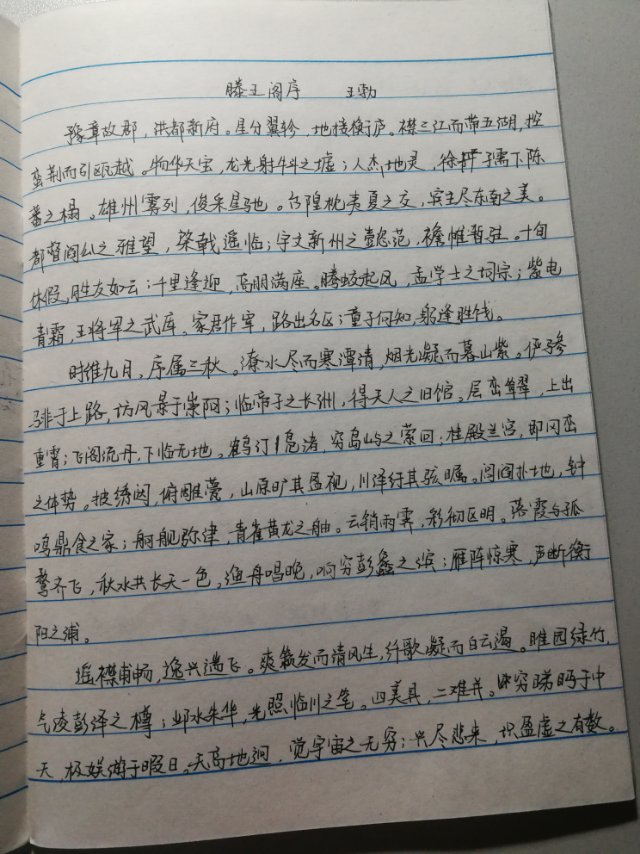 滕王阁序 王勃
豫章故郡，洪都新府。星分翼轸，地接衡庐。襟三江而带五湖，控
蛮荆而引瓯越。物华天宝，龙光射牛斗之墟；人杰地灵，徐孺下陈
蕃之榻。雄州雾列，俊采星驰。台隍枕夷夏之交，宾主尽东南之美。
都督阎公之雅望，棨戟遥临；宇文新州之懿范，襜帷暂驻。十旬
休假，胜友如云；千里逢迎，高朋满座。腾蛟起凤，孟学士之词宗；紫电
青霜，王将军之武库。家君作宰，路出名区；童子何知，躬逢胜饯。
时维九月，序属三秋。潦水尽而寒潭清，烟光凝而暮山紫。俨骖
騑于上路，访风景于崇阿；临帝子之长洲，得天人之旧馆。层峦耸翠，上出
重霄；飞阁流丹，下临无地。鹤汀凫渚，穷岛屿之萦回；桂殿兰宫，即冈峦
之体势。披绣闼，俯雕甍，山原旷其盈视，川泽纡其骇瞩。闾阎扑地，钟
鸣鼎食之家；舸舰弥津，青雀黄龙之舳。云销雨霁，彩彻区明。落霞与孤
鹜齐飞，秋水共长天一色，渔舟唱晚，响穷彭蠡之滨；雁阵惊寒，声断衡
阳之浦。
遥襟甫畅，逸兴遄飞。爽籁发而清风生，纤歌凝而白云遏。睢园绿竹，
气凌彭泽之樽；邺水朱华，光照临川之笔。四美具，二难并。穷睇眄于中
天，极娱游于暇日。天高地迥，觉宇宙之无穷；兴尽悲来，识盈虚之有数。